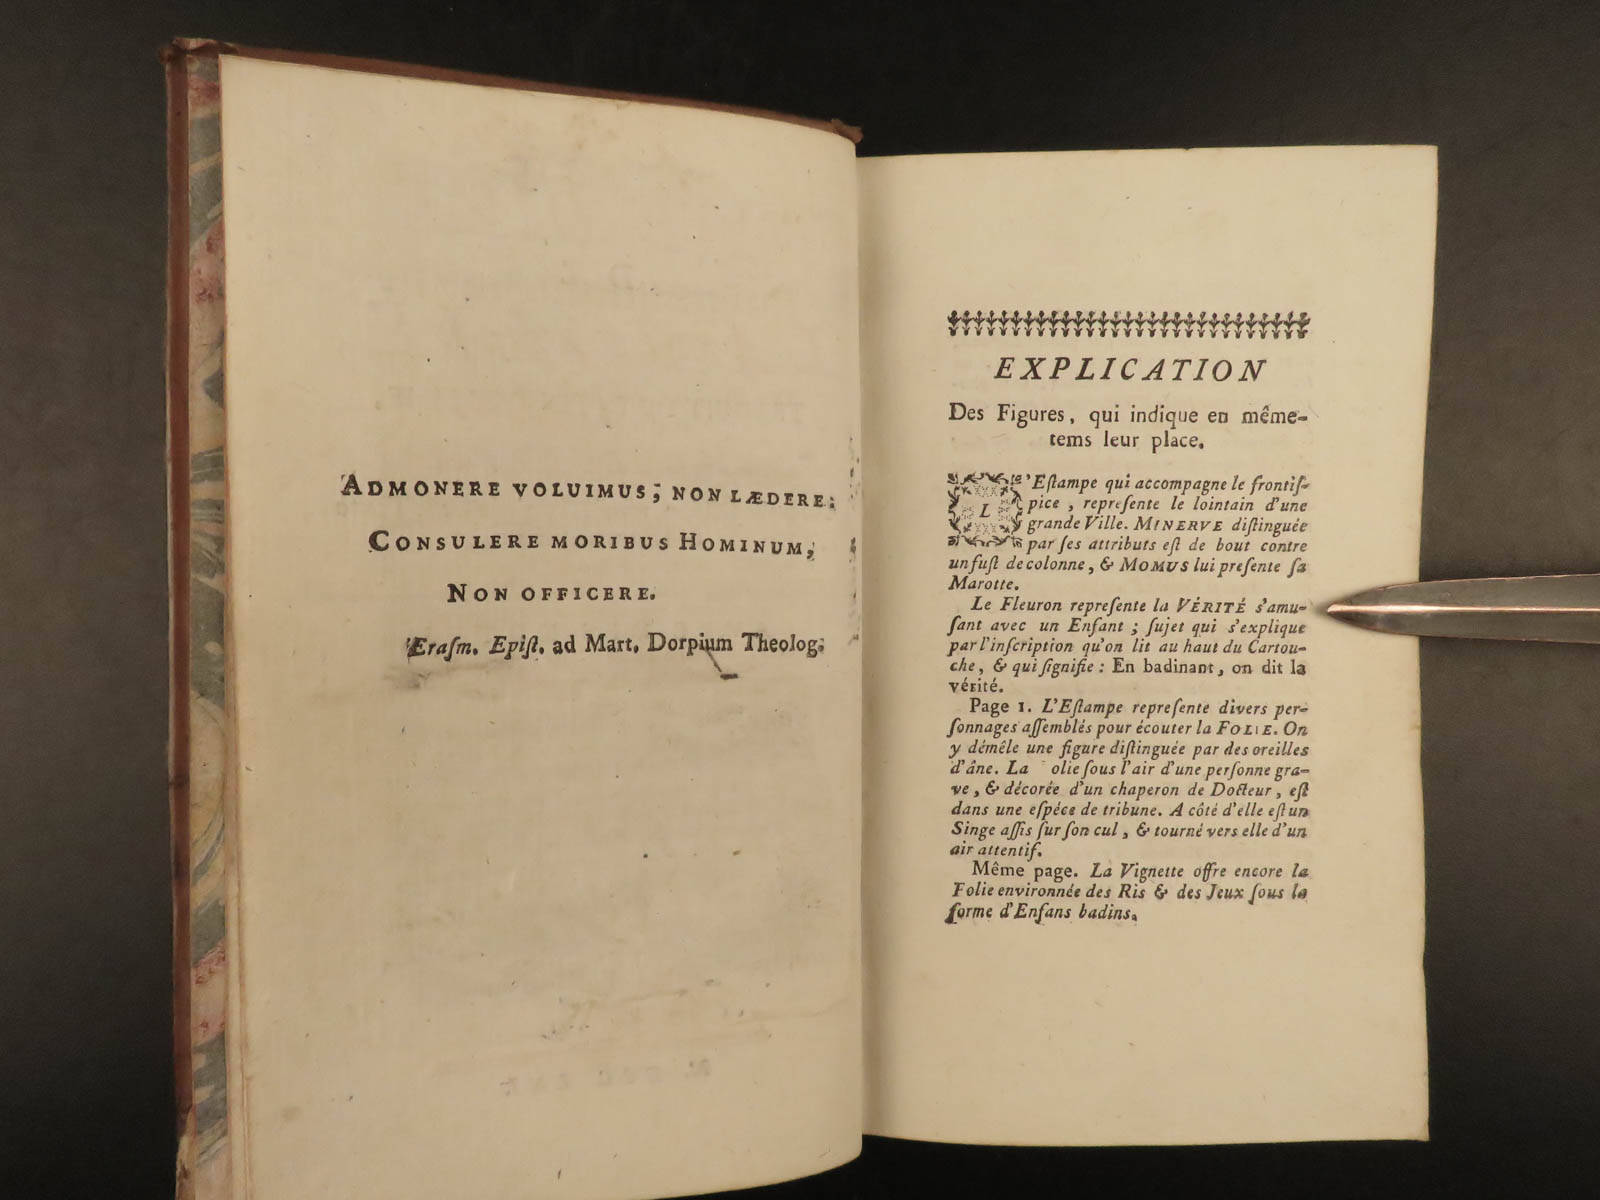 ADMONERE VOLUIMUS, NON LÆDERE:
CONSULERE MORIBUS HOMINUM,
NON OFFICERE.
Eraſm. Epiſt. ad Mart. Dorpium Theolog.
EXPLICATION
Des Figures, qui indique en même-
tems leur place.
L'Eſtampe qui accompagne le frontiſ-
pice, repreſente le lointain d'une
grande Ville. MINERVE diſtinguée
par ſes attributs eſt de bout contre
un fuſt de colonne, & MOMUS lui preſente ſa
Marotte.
Le Fleuron repreſente la VÉRITÉ s'amu-
ſant avec un Enfant ; ſujet qui s'explique
par l'inſcription qu'on lit au haut du Cartou-
che, & qui ſignifie : En badinant, on dit la
vérité.
Page 1. L'Eſtampe repreſente divers per-
ſonnages aſſemblés pour écouter la FOLIE. On
y démêle une figure diſtinguée par des oreilles
d'âne. La olie ſous l'air d'une perſonne gra-
ve, & décorée d'un chaperon de Docteur, eſt
dans une eſpéce de tribune. A côté d'elle eſt un
Singe aſſis ſur ſon cul, & tourné vers elle d'un
air attentif.
Même page. La Vignette offre encore la
Folie environnée des Ris & des Jeux ſous la
forme d'Enfans badins.